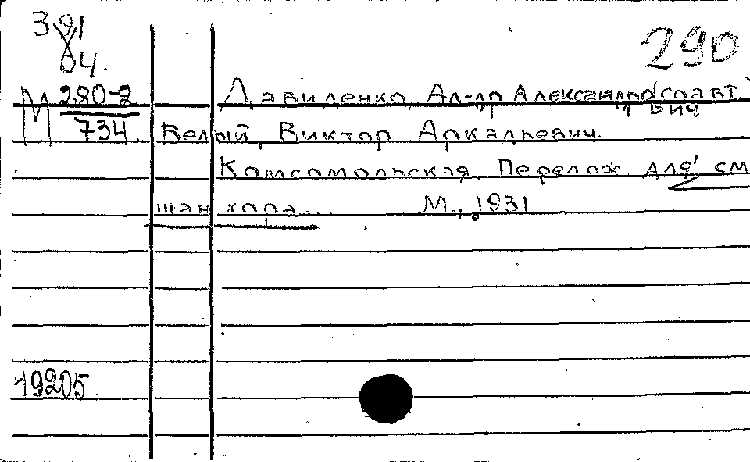 391
04
290
М 280-2
734
Давиденко, Ал-др Александрович соавт.
Белый, Виктор Аркадьевич.
Комсомольская. Перелож. для см
шан хора... М., 1931
19205